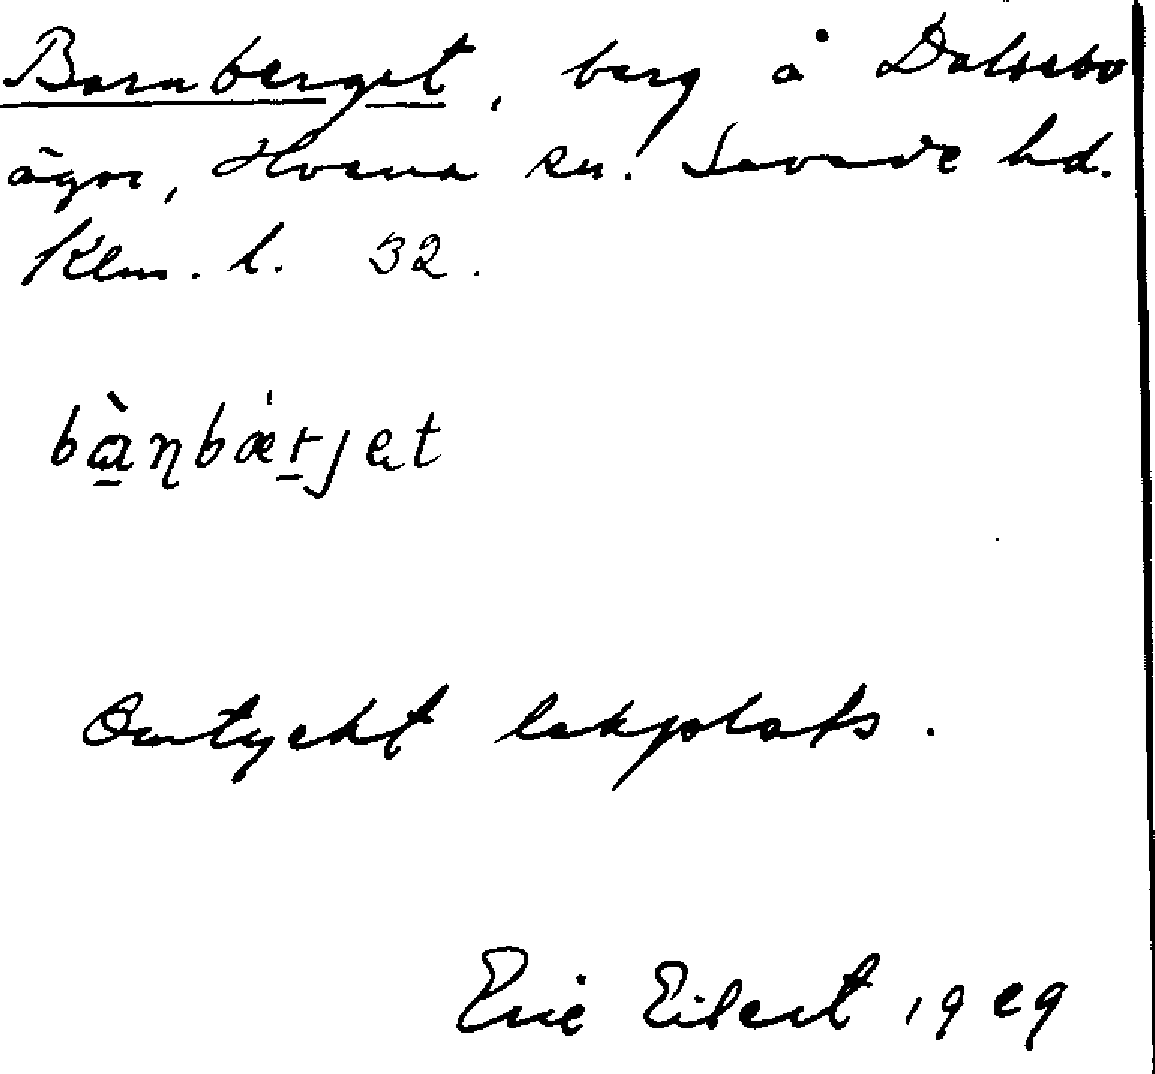 Barnberget, berg å Dalsebo
ägor, Hvena sn. Sevede hd.
Klm. l. 32.
bà̱ɳbæ̀ṟjet
Omtyckt lekplats.
Eric Eilert 1929